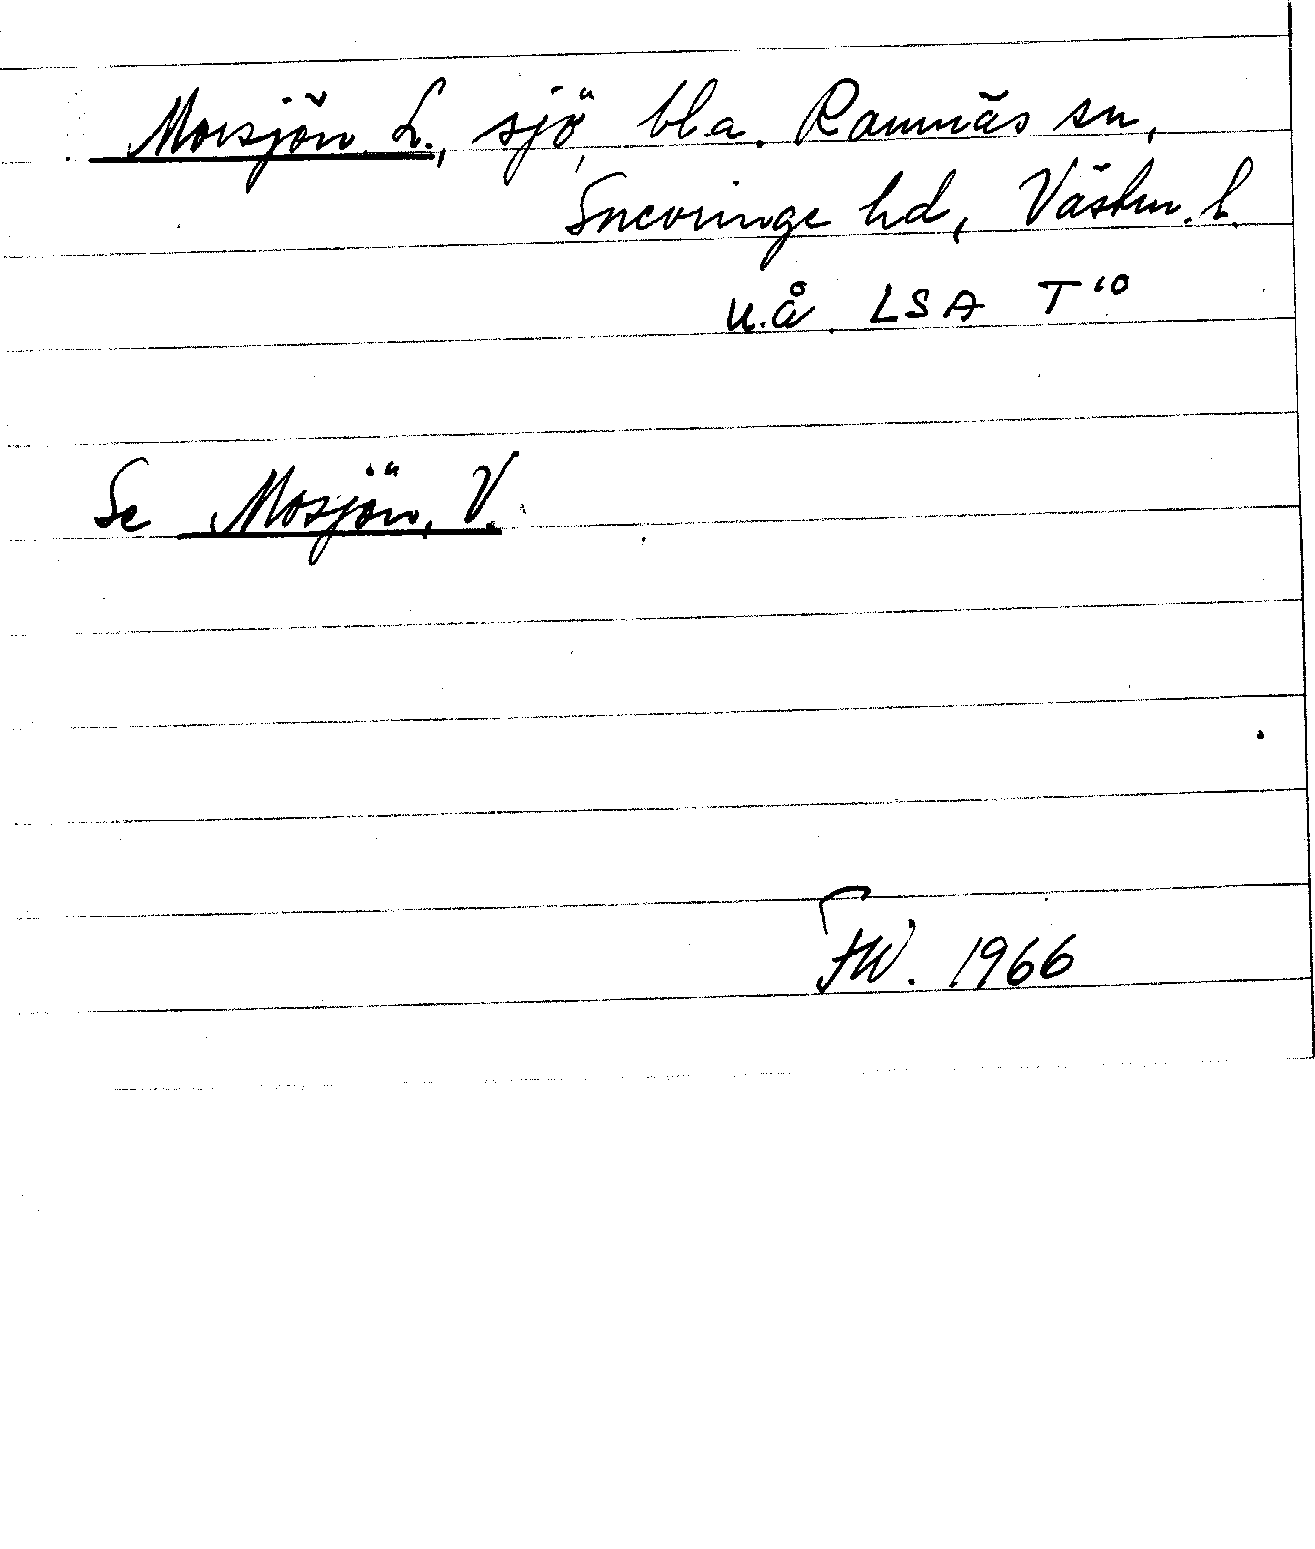 Morsjön L., sjö, bl.a. Ramnäs sn,
Snevringe hd, Västm. l.
u.å. LSA T 10
Se Mosjön, V.
FW. 1966